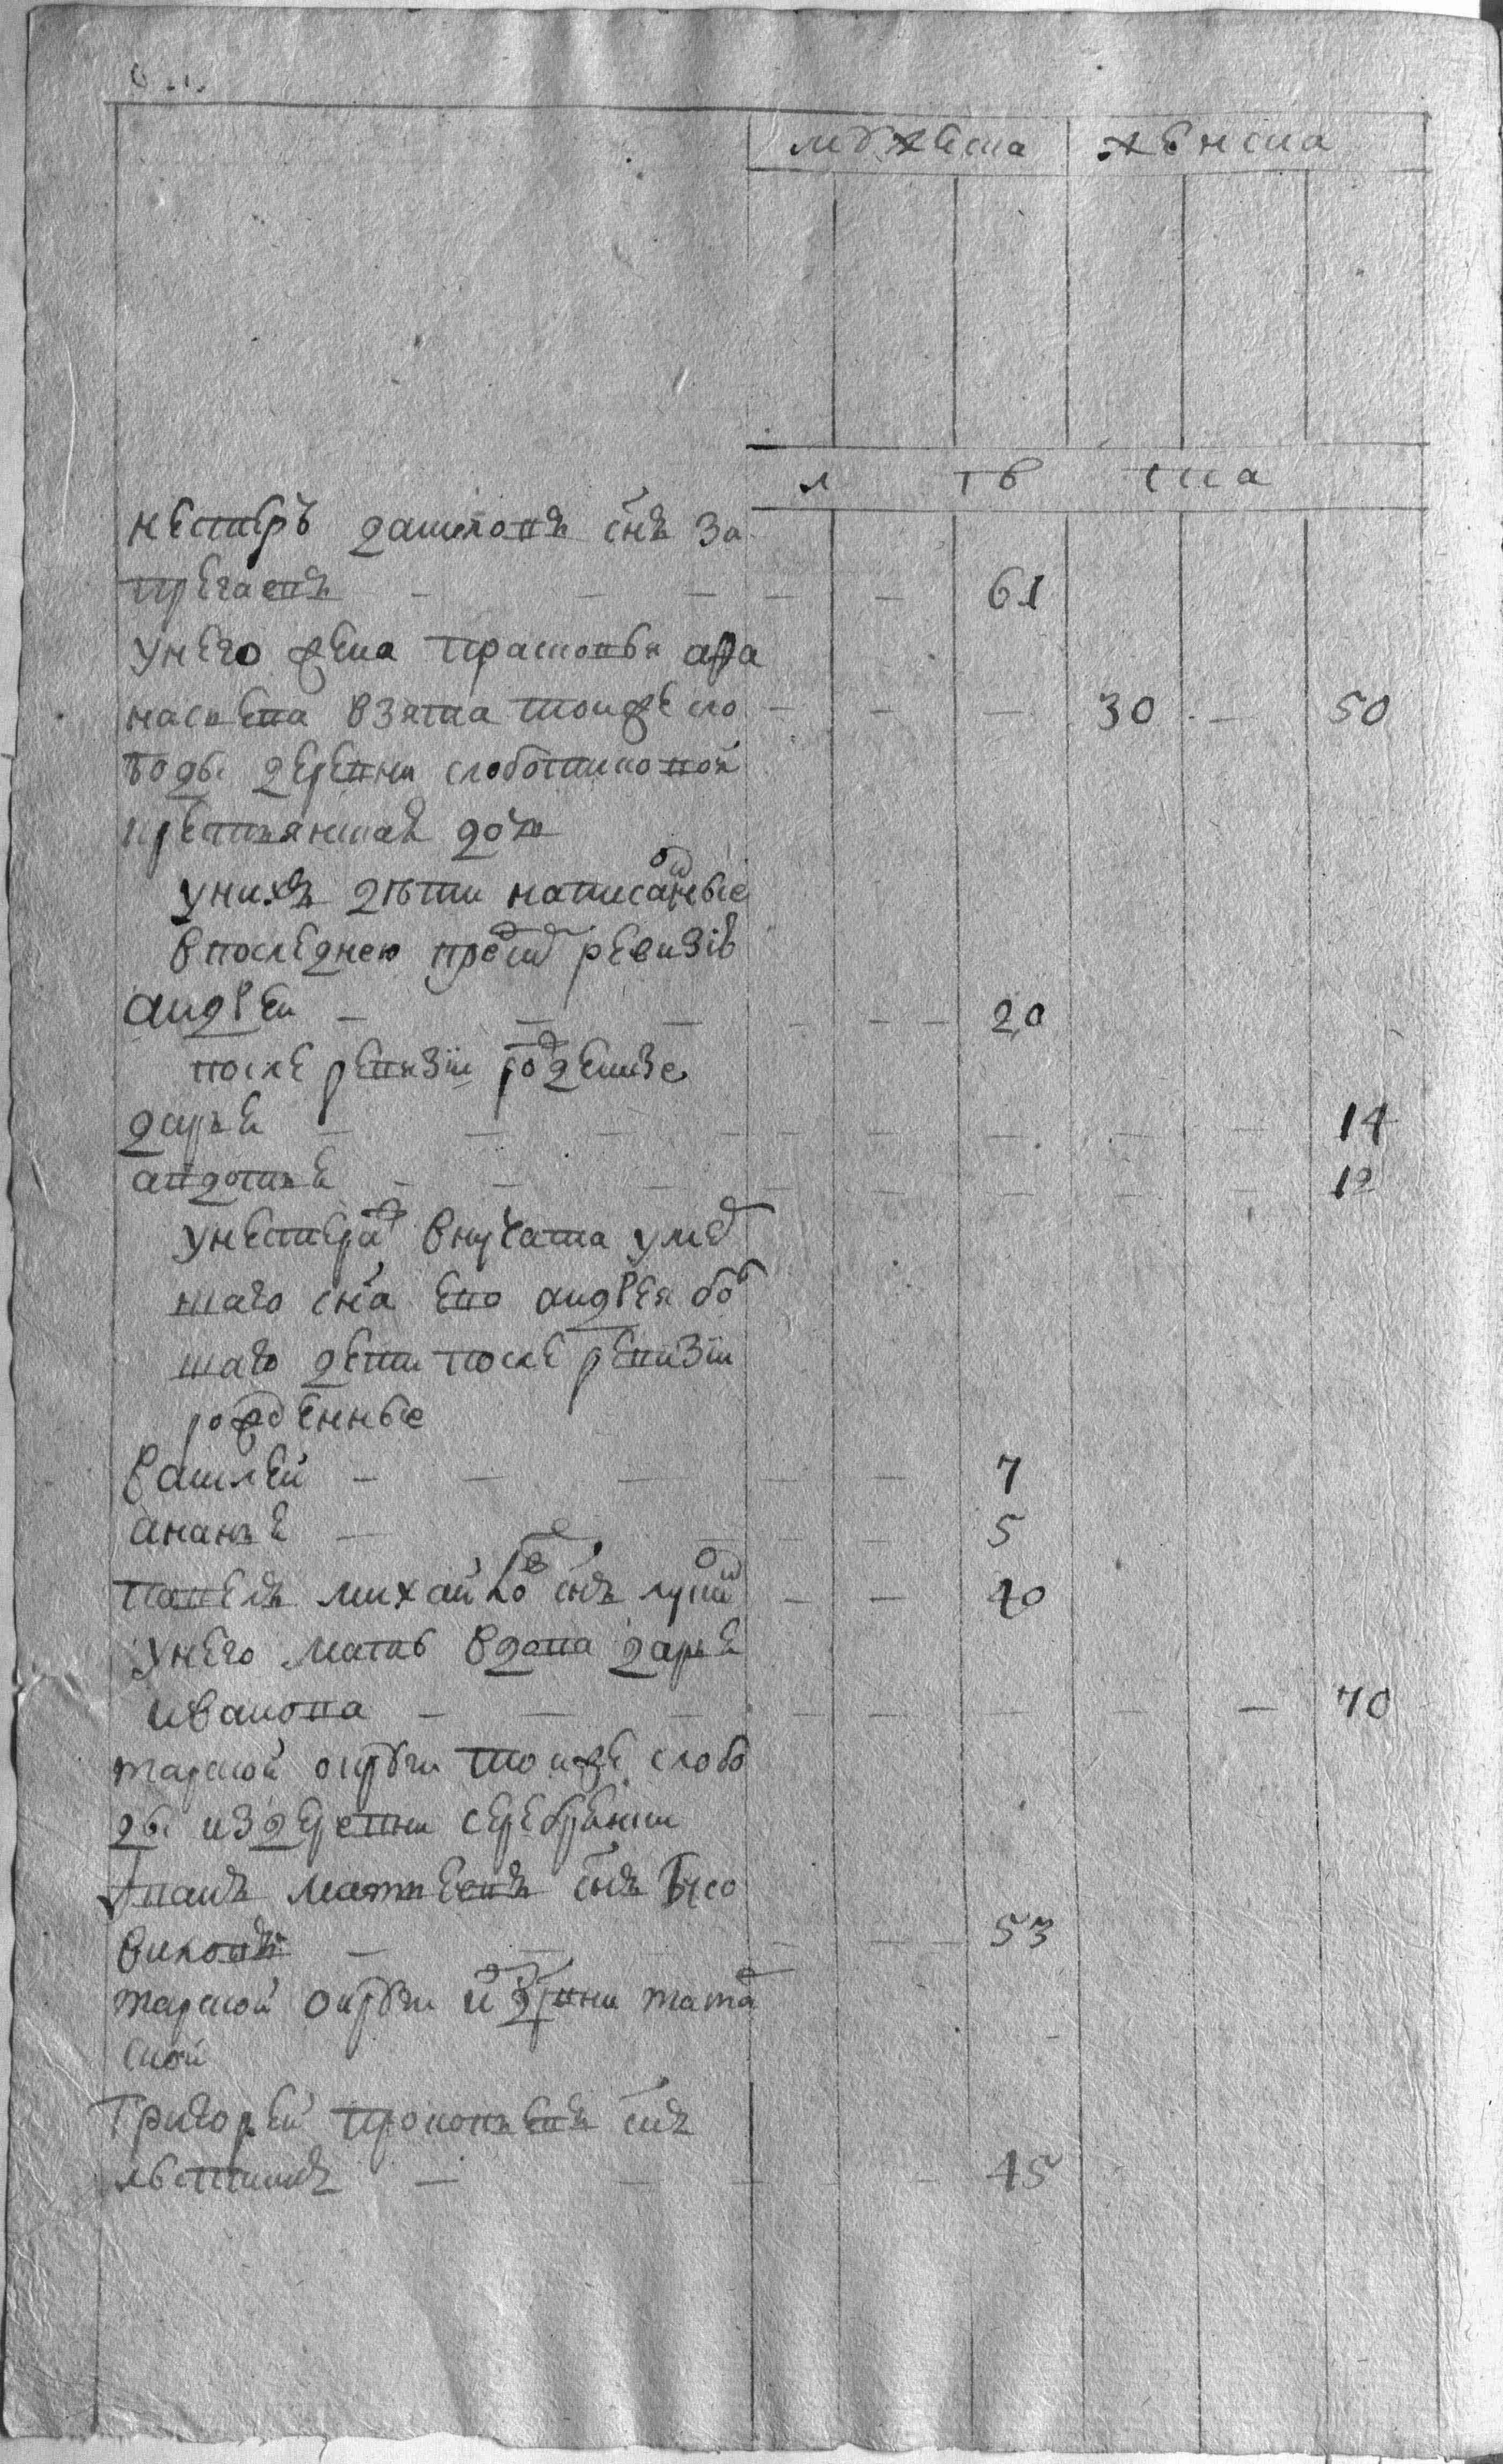 мужеска женска
л тв ска
нестеръ данилов снъ за
пречаевъ 61
унего жена прасковья афа
насьева взята тоиже сло 30 50
боды деревни слоботчиковой
крестьянская дочь
унихъ дѣти написанные
впоследнею пред сим ревизiѣ
андрей 20
после ревизiи рожденые
дарья 14
авдотья 12
унестера внучата умер
шаго сна ево андрея бо
шаго дети после ревизiи
рожденные
василей 7
ананья 5
павелъ михайлов снъ 40
унего мать вдова дарья
иванова 70
тарской округи тоиже слобо
ды из деревни серебрянки
иванъ матвеевъ снъ
виковъ 53
тарской округи из деревни татар
ской
григорей прокопьевъ снъ
45